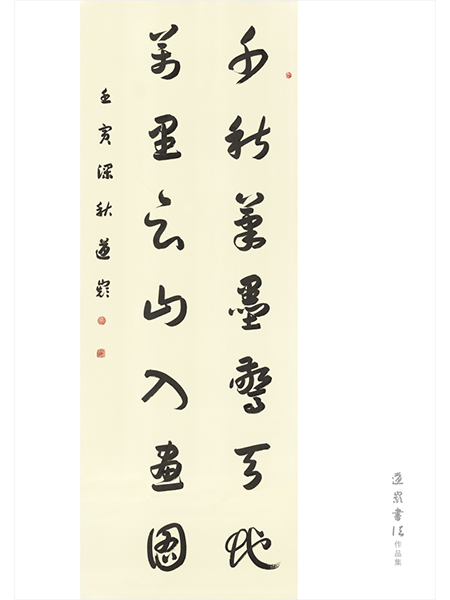 千秋筆墨驚天地
萬里云山入畫圖
壬寅深秋
書法
作品集